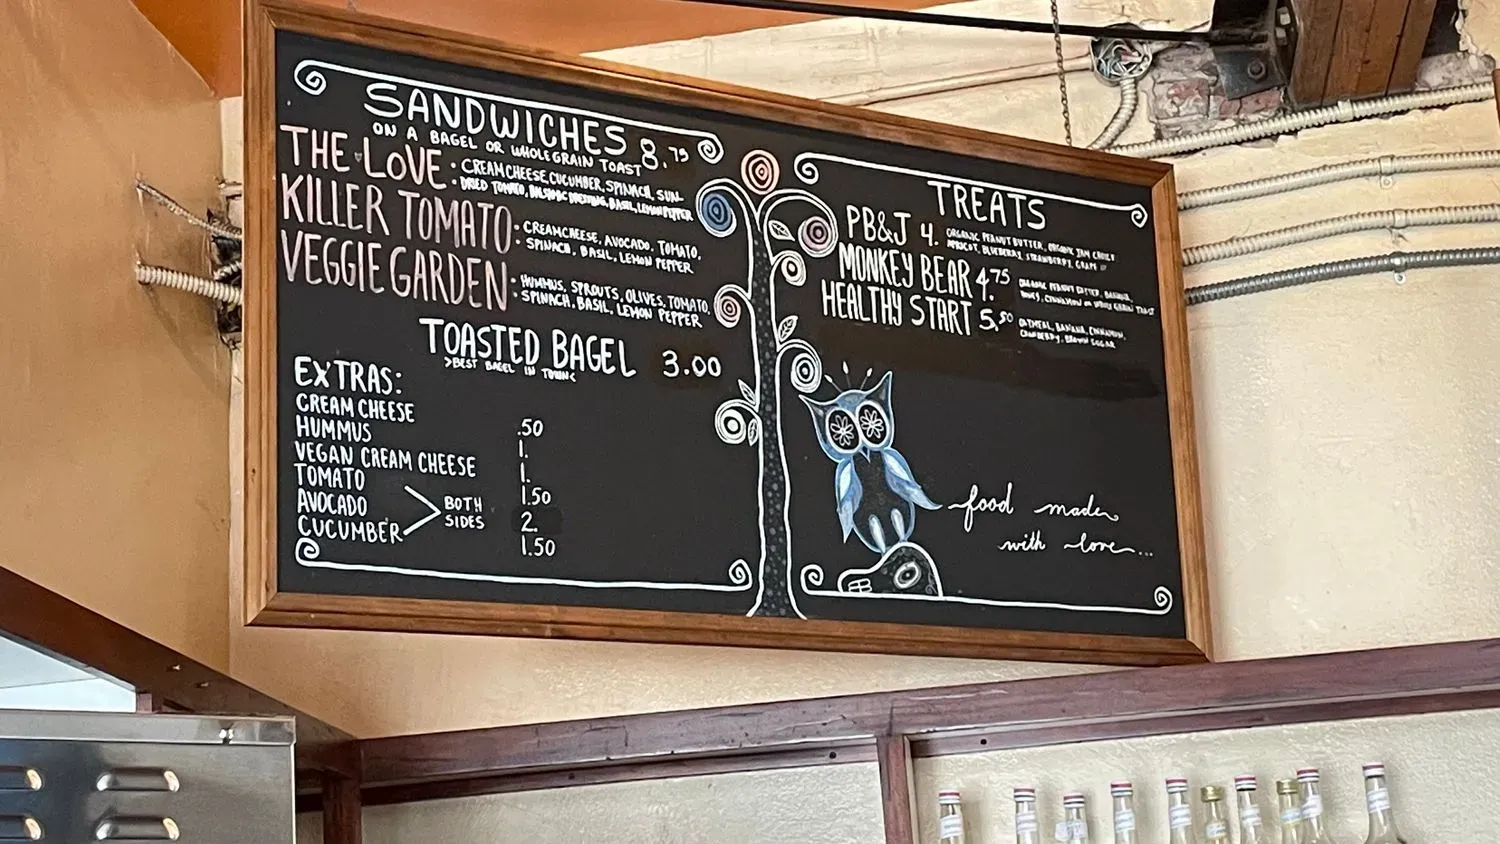 SANDWICHES 8.75
ON A BAGEL OR WHOLE GRAIN TOAST
THE LOVE • CREAM CHEESE, CUCUMBER, SPINACH, SUN-
• DRIED TOMATO, BALSAMIC DRESSING, BASIL, LEMON PEPPER
KILLER TOMATO • CREAMCHEESE, AVOCADO, TOMATO,
• SPINACH, BASIL, LEMON PEPPER
VEGGIE GARDEN • HUMMUS, SPROUTS, OLIVES, TOMATO,
• SPINACH, BASIL, LEMON PEPPER
TOASTED BAGEL 3.00
>BEST BAGEL IN TOWN<
EXTRAS:
CREAM CHEESE .50
HUMMUS 1.
VEGAN CREAM CHEESE 1.
TOMATO 1.50
AVOCADO 2.
CUCUMBER 1.50
BOTH
SIDES
TREATS
PB&J 4. ORGANIC PEANUT BUTTER, ORGANIC JAM CHOICE
APRICOT, BLUEBERRY, STRAWBERRY, GRAPE
MONKEY BEAR 4.75 ORGANIC PEANUT BUTTER, BANANA,
HONEY, CINNAMON on WHOLE GRAIN TOAST
HEALTHY START 5.50 OATMEAL, BANANA, CINNAMON,
CRANBERRY, BROWN SUGAR
food made
with love...